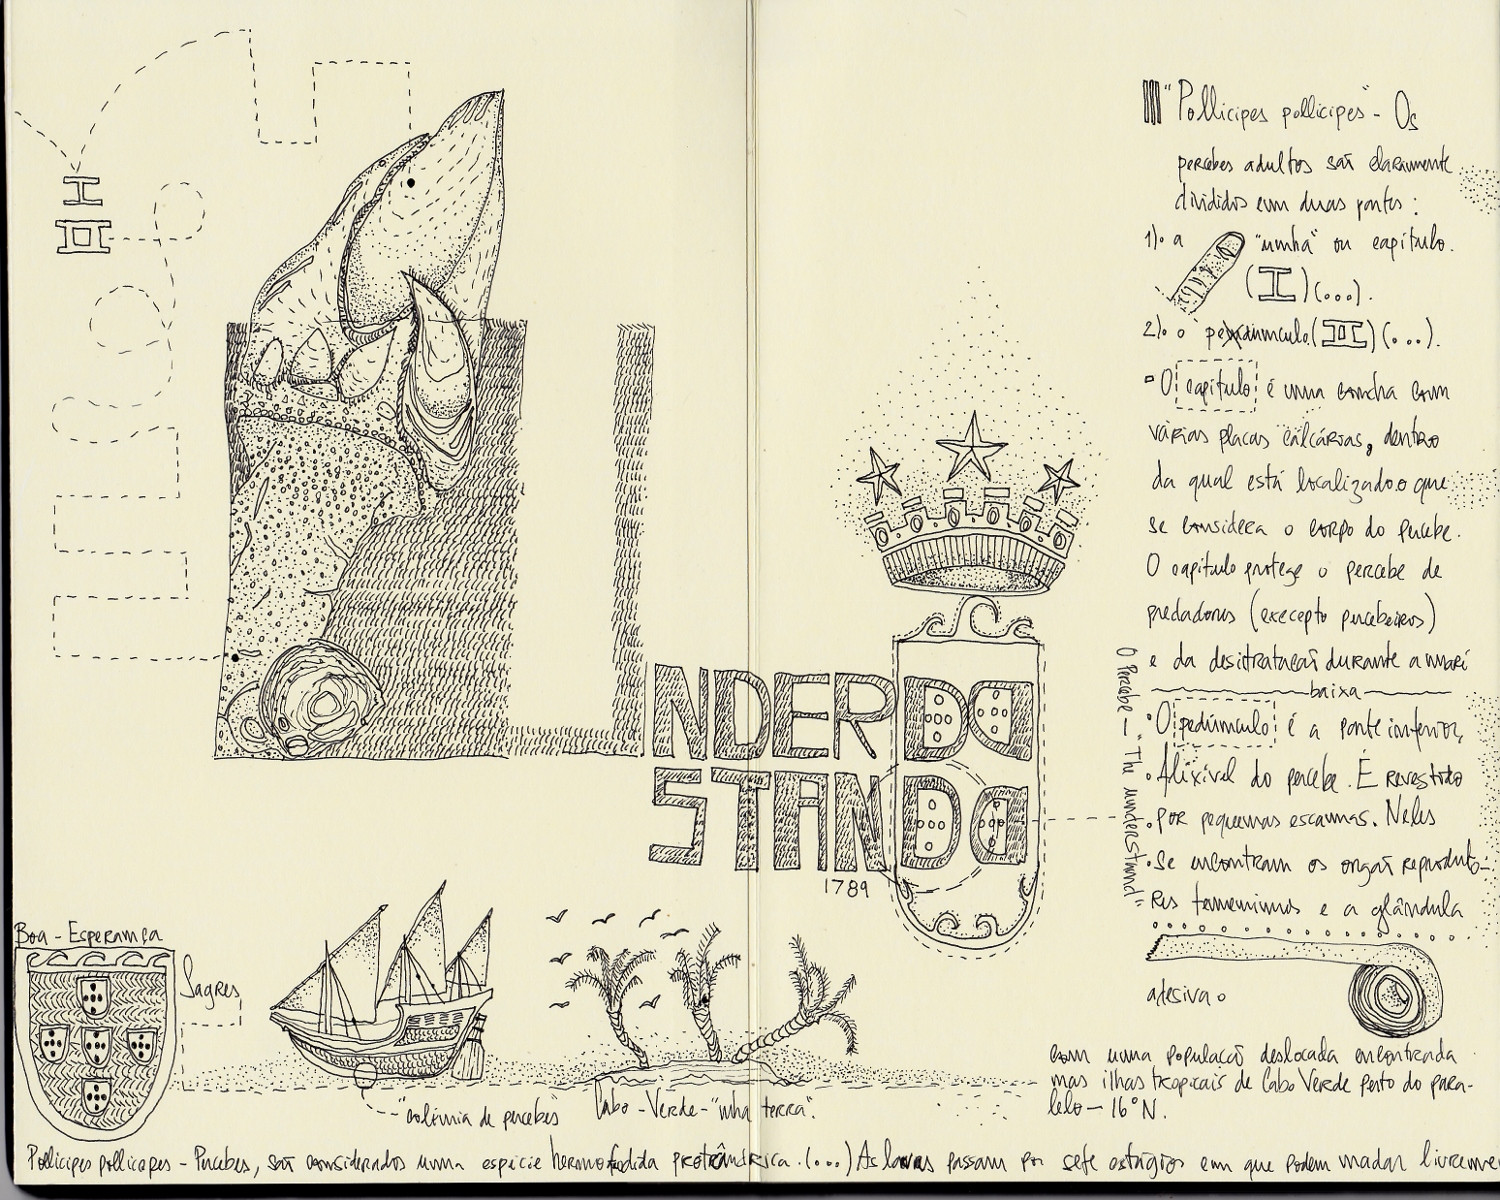 I
II
"Pollicipes pollicipes" - Os
percebes adultos são claramente
divididos em duas partes:
1). a "unha" ou capítulo.
(I)(...).
2). o pedúnculo (II)(...).
O capítulo é uma concha com
várias placas calcárias, dentro
da qual está localizado o que
se considera o corpo do percebe.
O capítulo protege o percebe de
predadores (execepto percebeiros)
e da desitratacaõ durante a maré
baixa
O pedúnculo é a parte inferior,
flixível do percebe. É revestido
por pequenas escamas. Neles
se encontram os orgaõ reproduto-
res femeninos e a glândula
adesiva.
O Percebe - "The understand"
UNDER
STAND
1789
Boa - Esperança
Sagres
"colónia de percebes"
Cabo - Verde - "nha terra".
com uma populaçaõ deslocada encontrada
nas ilhas tropicais de Cabo Verde perto do para-
lelo - 16°N.
Pollicipes pollicepes - Percebes, saõ considerados uma espécie hermofrodida protândrica. (...) As larvas passam por sete estágios em que podem nadar livreme